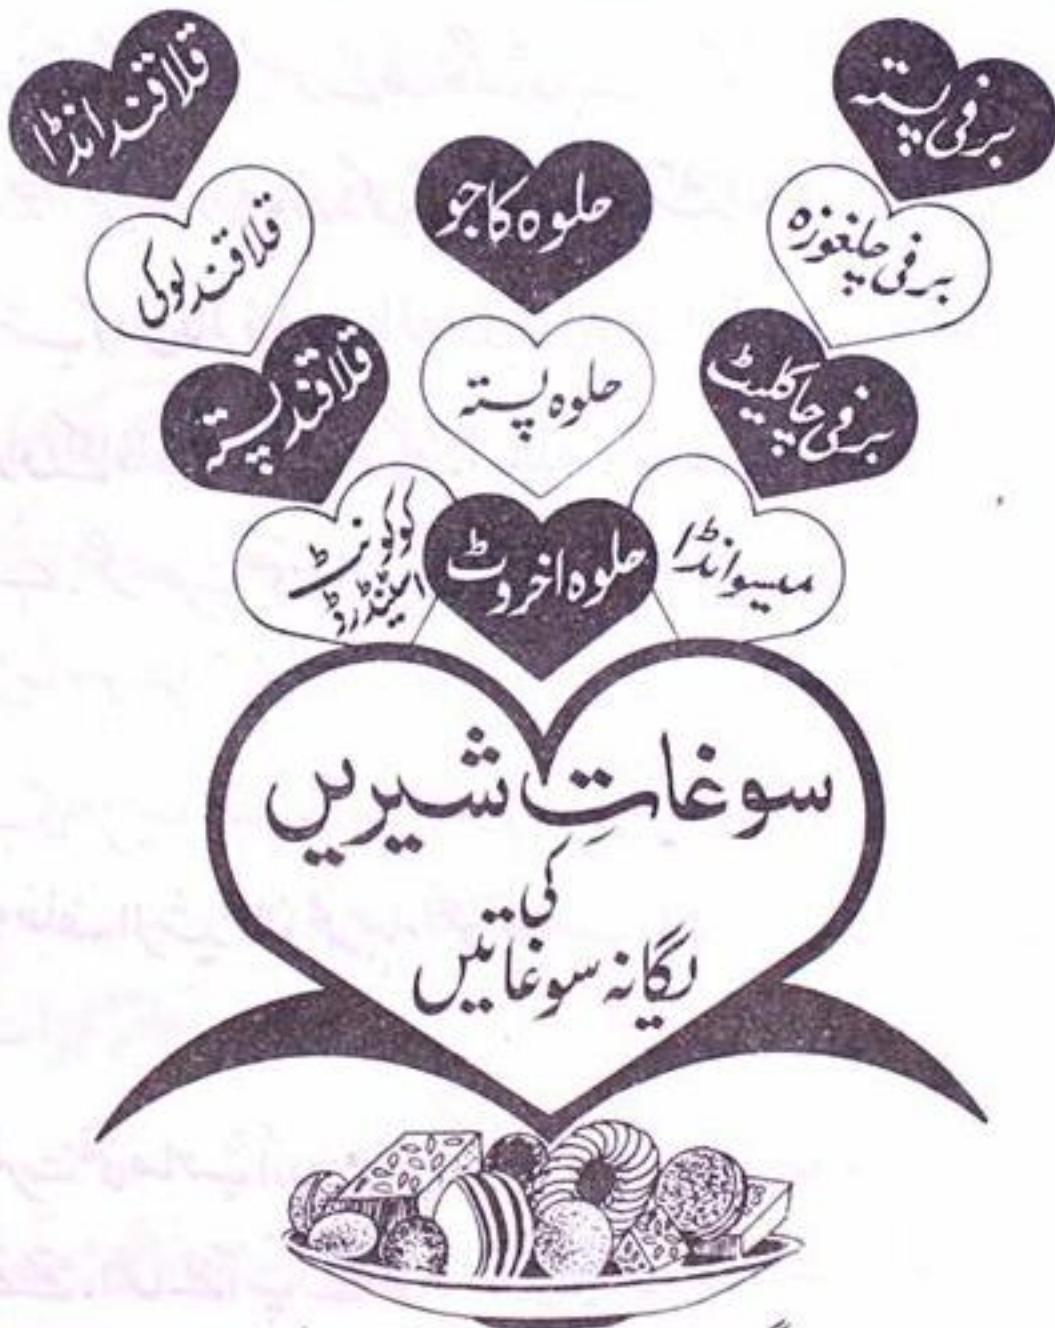 برفی پستہ
برفی چلغوزہ
برفی چاکلیٹ
میسوانڈا
حلوہ کاجو
حلوہ پستہ
حلوہ اخروٹ
قلاقند انڈا
قلاقند لوکی
قلاقند پستہ
کوکونٹ
اسٹینڈرڈ
سوغاتِ شیریں
کی
یگانہ سوغاتیں